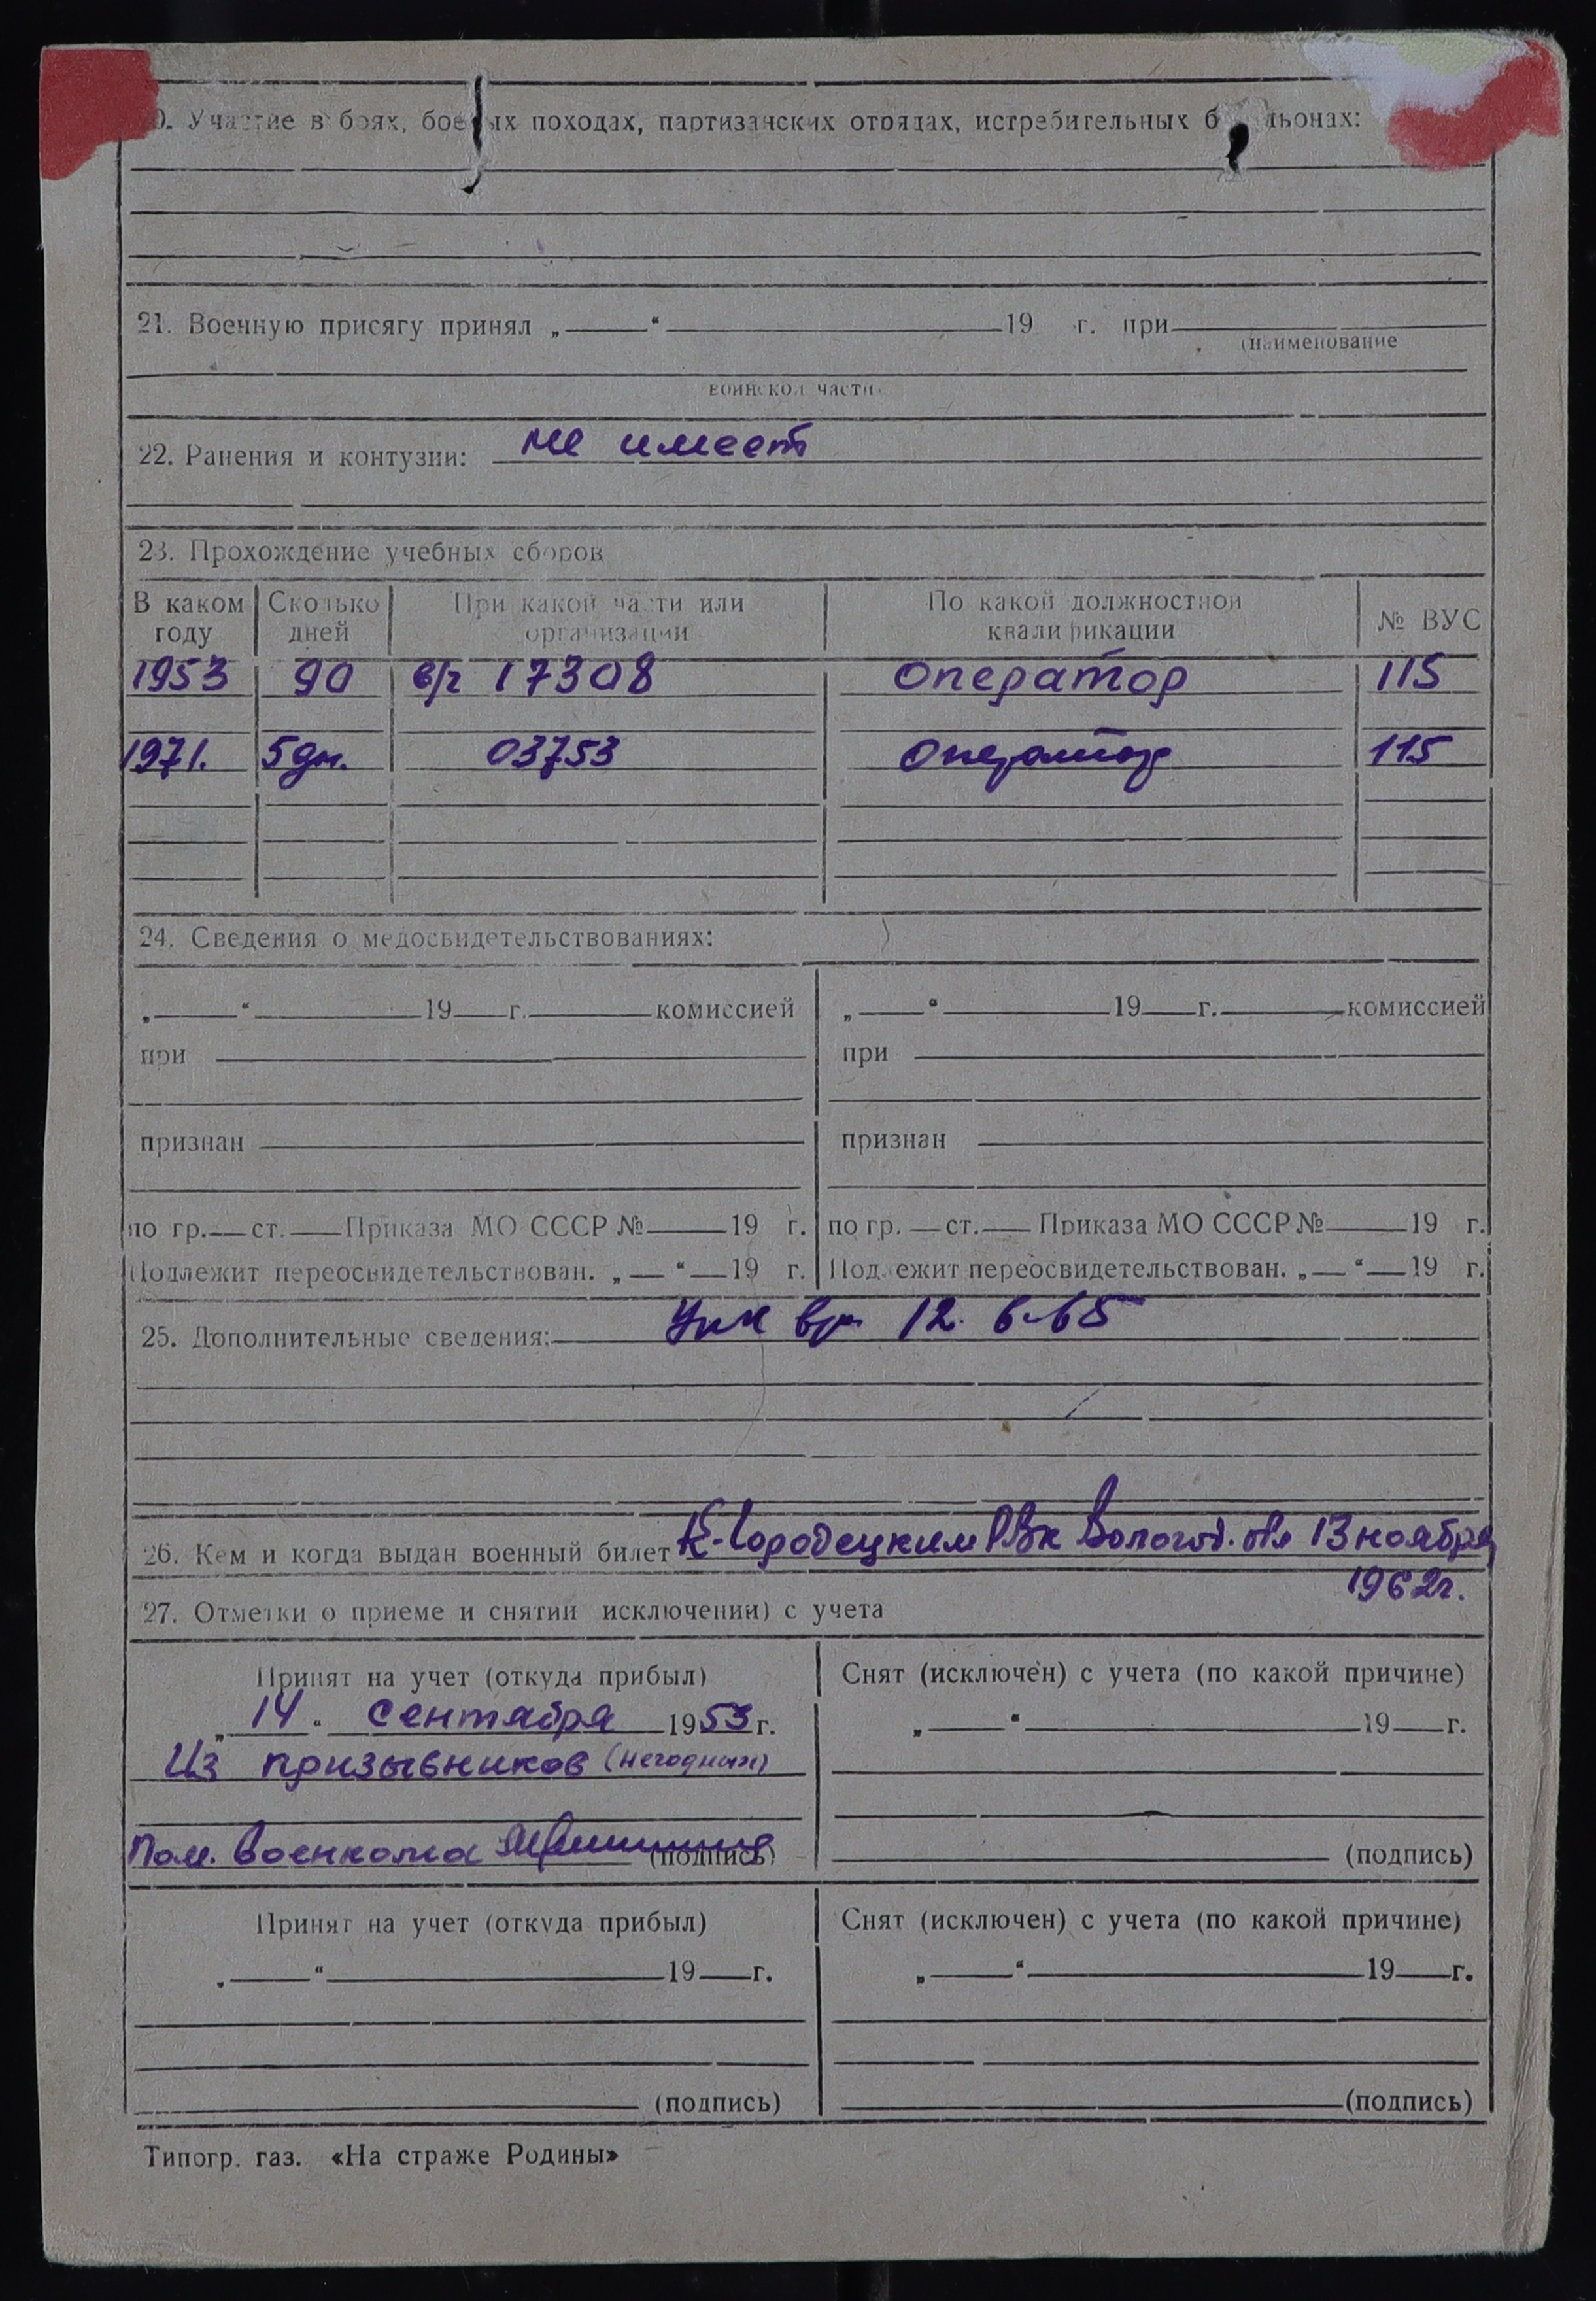 0. Участие в боях, боевых походах, партизанских отрядах, истребительных б льонах:
21. Военную присягу принял „ “ 19 г. при
(наименование
воинской части
22. Ранения и контузии: не имеет
23. Прохождение учебных сборов
В каком году Сколько дней При какой части или организации По какой должностной квалификации № ВУС
1953 90 в/ч 17308 оператор 115
1971. 5 дн. 03753 оператор 115
24. Сведения о медосвидетельствованиях:
„ “ 19 г. комиссией „ “ 19 г. комиссией
при при
признан признан
по гр. ст. Приказа МО СССР № 19 г. по гр. ст. Приказа МО СССР № 19 г.
Подлежит переосвидетельствован. „ “ 19 г. Подлежит переосвидетельствован. „ “ 19 г.
25. Дополнительные сведения: 12. 6.65
26. Кем и когда выдан военный билет К-Городецким РВК Вологод. обл 13 ноября
1962г.
27. Отметки о приеме и снятии исключении) с учета
Принят на учет (откуда прибыл) Снят (исключен) с учета (по какой причине)
„ 14 “ сентября 1953 г. „ “ 19 г.
Из призывников (негодных)
Пом. военкома (подпись) (подпись)
Принят на учет (откуда прибыл) Снят (исключен) с учета (по какой причине)
„ “ 19 г. „ “ 19 г.
(подпись) (подпись)
Типогр. газ. «На страже Родины»